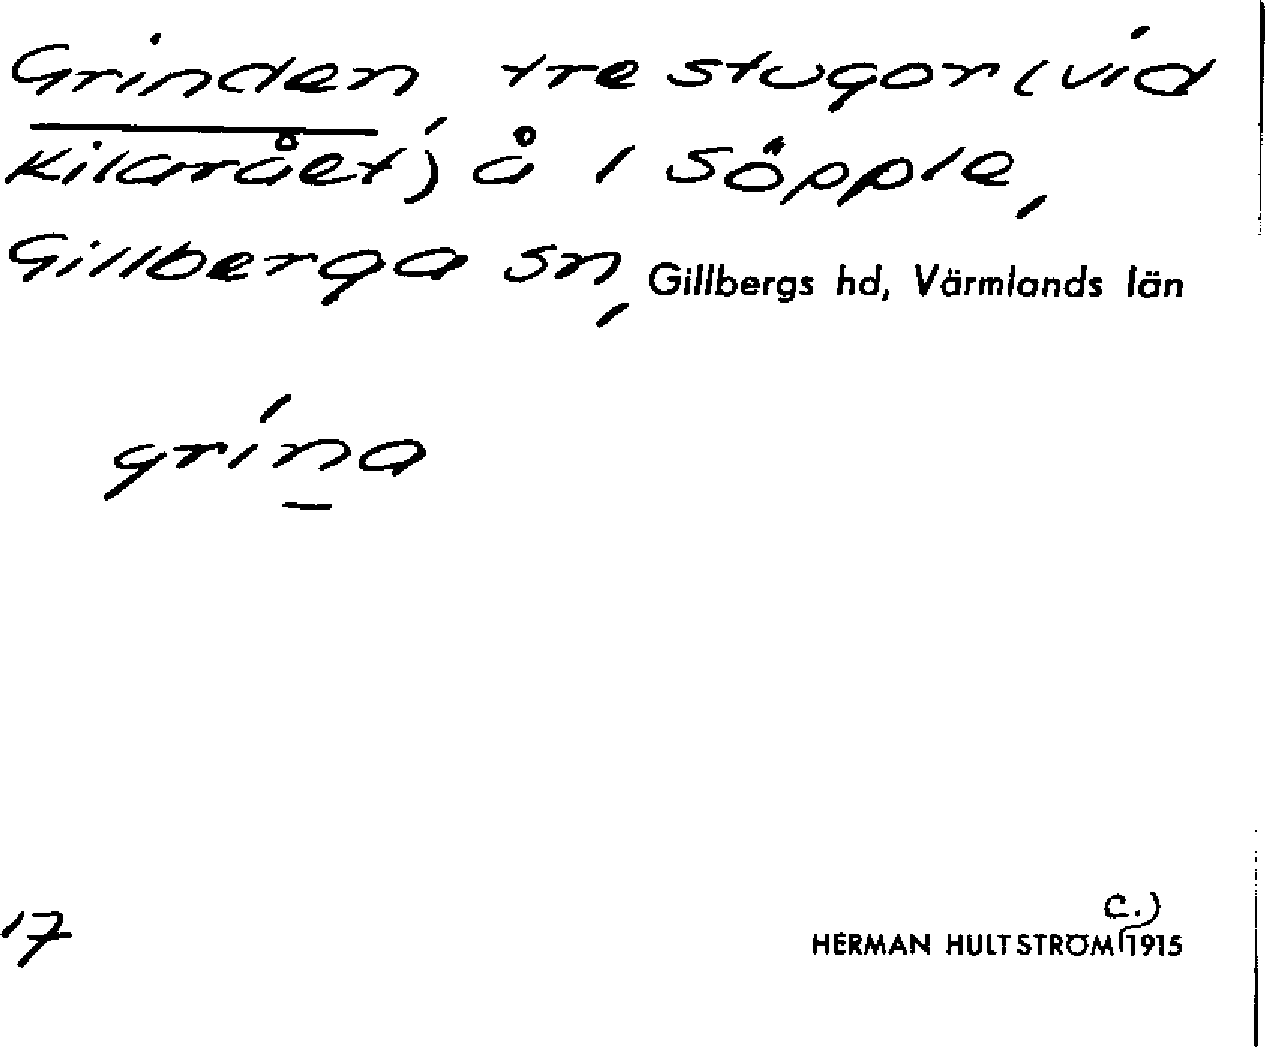 Grinden tre stugor (vid
Kilarået) å 1 Söpple,
Gillberga sn, Gillbergs hd, Värmlands län
grína
17
c.)
HERMAN HULTSTRÖM 1915